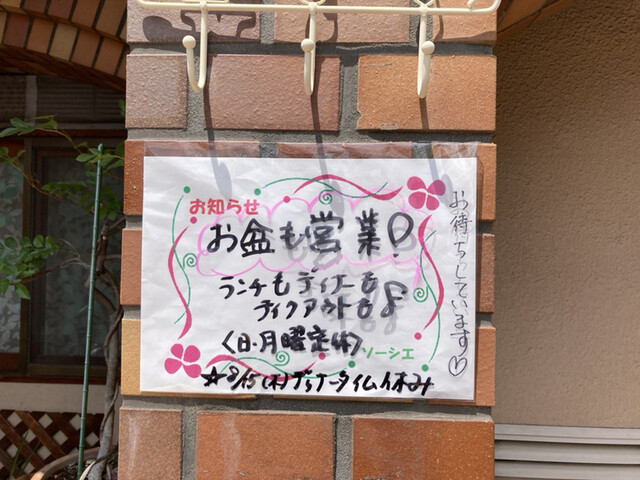 お知らせ
お盆も営業!
ランチもディナーも
テイクアウトも!
〈日・月曜定休〉
ソーシエ
☆8/15(木)ディナータイム休み
お待ちしています♡